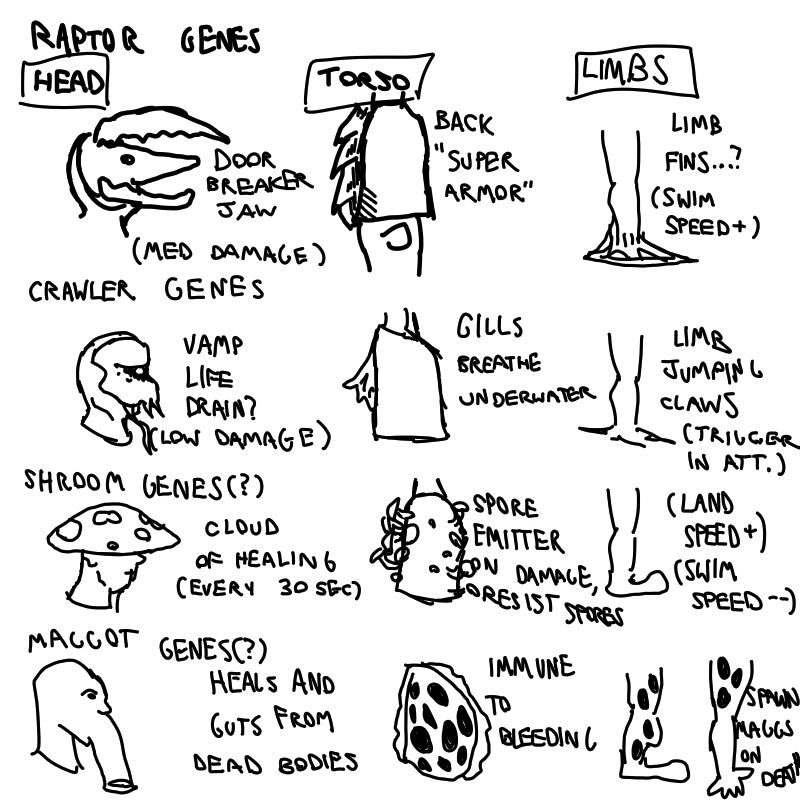 RAPTOR GENES
HEAD
DOOR
BREAKER
JAW
(MED DAMAGE)
TORSO
BACK
"SUPER
ARMOR"
LIMBS
LIMB
FINS...?
(SWIM
SPEED+)
CRAWLER GENES
VAMP
LIFE
DRAIN?
(LOW DAMAGE)
GILLS
BREATHE
UNDERWATER
LIMB
JUMPING
CLAWS
(TRIGGER
IN ATT.)
SHROOM GENES(?)
CLOUD
OF HEALING
(EVERY 30 SEC)
SPORE
EMITTER
ON DAMAGE,
RESIST SPORES
(LAND
SPEED+)
(SWIM
SPEED--)
MAGGOT GENES(?)
HEALS AND
GUTS FROM
DEAD BODIES
IMMUNE
TO
BLEEDING
SPAWN
MAGGS
ON
DEATH